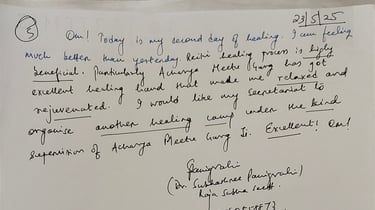 23/5/25
5
Om! Today is my second day of healing. I am feeling
much better than yesterday Reiki healing process is highly
beneficial. Particularly Acharya Meetu Garg has got
excellent healing hand that made me relaxed and
rejuvenated. I would like my Secretariat to
organise another healing camp under the kind
supervision of Acharya Meetu Garg Ji. Excellent! Om!
(Dr. Subhashree Panigrahi)
Rajya Sabha Sectt.